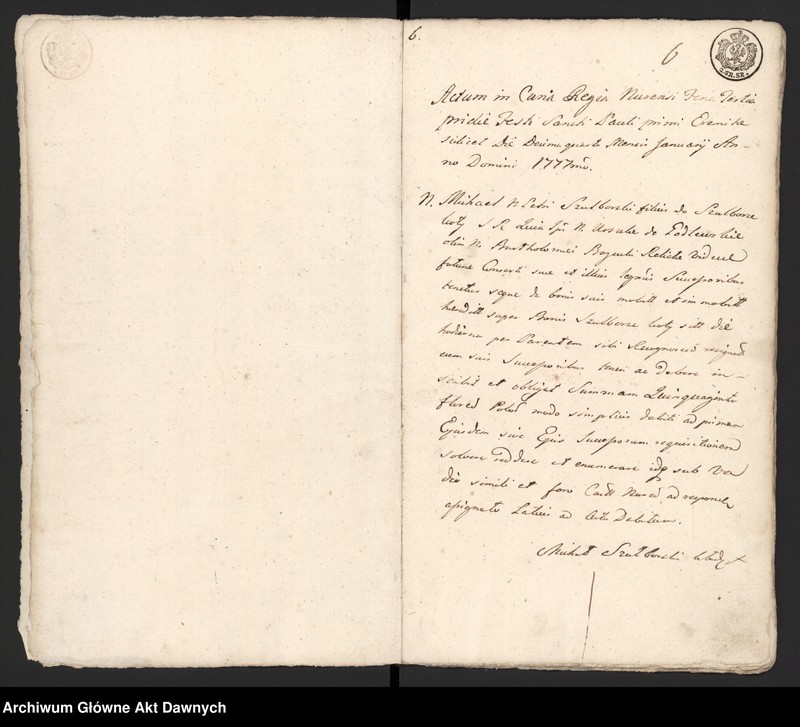 6.
6
2.GR.SR.
Actum in Curia Regia Nurensi Feria Tertia
pridie Festi Sancti Pauli primi Eremitæ
scilicet Die Decima quarta Mensis January An-
no Domini 1777mo.
N. Michael N Petri Szulborski filius de Szulborze
koty S R Quia Ipse N Ursulæ de Godlewskie
olim N Bartholomei Boguti Relictæ Viduæ
futuræ Consorti suæ et illius Successoribus
tenetur seque de bonis suis mobili et immobili
super Bonis Szulborze koty siti die
hodierna per Parentem sibi
cum suis Successoribus teneri ac debere in-
scribit et obligat Summam Quinquaginta
floren Polon modo simplicis debiti ad primam
Ejusdem sive Ejus Successorum requisitionem
solvere reddere et enumerare idq sub Va
dio simili et foro Castr Nuren ad
Latius ad Acta Debitum.
Michał Szulborski
Archiwum Główne Akt Dawnych